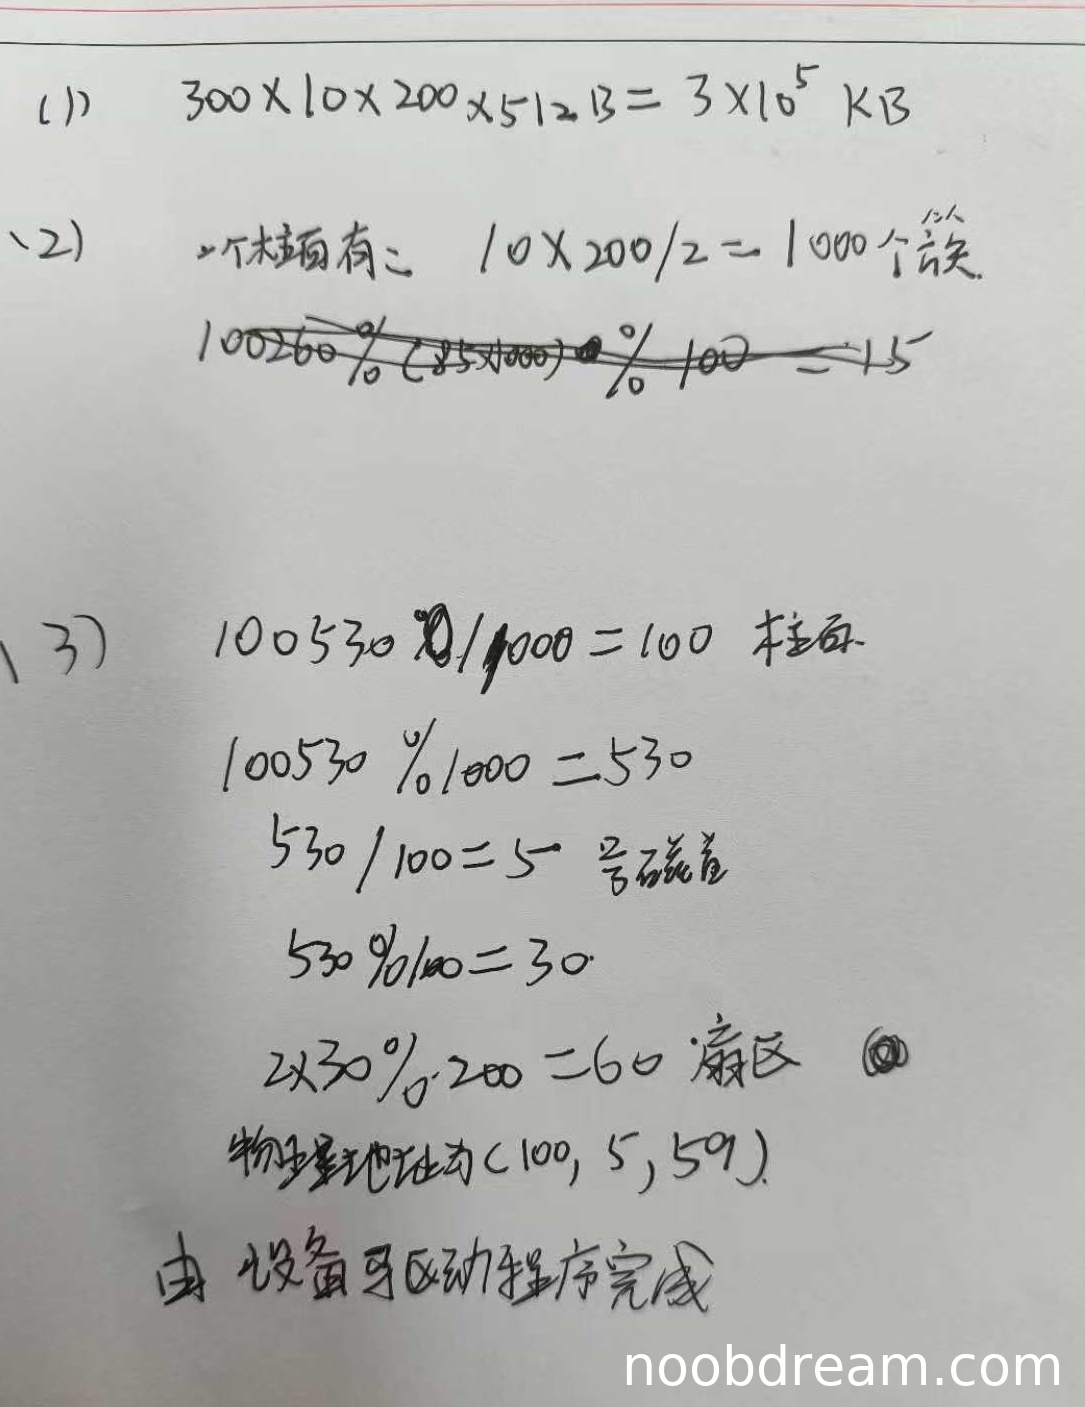 (1) 300×10×200×512B=3×10⁵ KB
(2) 一个柱面有: 10×200/2=1000个簇.
100260%(85×1000)%100=15
(3) 100530/1000=100 柱面.
100530%1000=530
530/100=5 号磁盘
530%100=30.
2×30%200=60 扇区
物理地址为(100, 5, 59).
由 设备驱动程序完成
noobdream.com